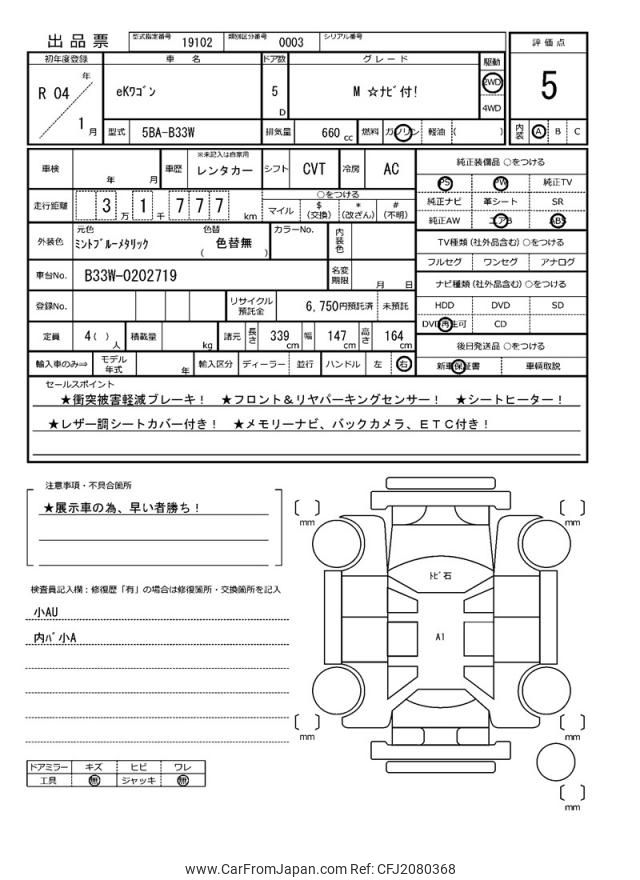 出品票 型式指定番号 19102 類別区分番号 0003 シリアル番号
初年度登録 車名 ドア数 グレード 駆動 評価点
R 04 年 1 月 eKワゴン 5 D M ☆ナビ付! 2WD 4WD 5
型式 5BA-B33W 排気量 660 cc 燃料 ガソリン 軽油 ( ) 内装 A B C
車検 年 月 車歴 ※未記入は自家用 レンタカー シフト CVT 冷房 AC
走行距離 3 万 1 千 7 7 7 km ○をつける
マイル $ (交換) * (改ざん) # (不明)
外装色 元色 ミントブルーメタリック 色替 ( 色替無 ) カラーNo. 内装色
車台No. B33W-0202719 名変期限 月 日
登録No. リサイクル預託金 6,750円預託済 未預託
定員 4( ) 人 積載量 kg 諸元 長さ 339 cm 幅 147 cm 高さ 164 cm
輸入車のみ⇨ モデル年式 年 輸入区分 ディーラー 並行 ハンドル 左 右
純正装備品 ○をつける
PS PW 純正TV
純正ナビ 革シート SR
純正AW エアB ABS
TV種類 (社外品含む) ○をつける
フルセグ ワンセグ アナログ
ナビ種類 (社外品含む) ○をつける
HDD DVD SD
DVD再生可 CD
後日発送品 ○をつける
新車保証書 車輌取説
セールスポイント
★衝突被害軽減ブレーキ! ★フロント&リヤパーキングセンサー! ★シートヒーター!
★レザー調シートカバー付き! ★メモリーナビ、バックカメラ、ETC付き!
注意事項・不具合箇所
★展示車の為、早い者勝ち!
検査員記入欄:修復歴「有」の場合は修復箇所・交換箇所を記入
小AU
内バ小A
ドアミラー キズ ヒビ ワレ
工具 無 ジャッキ 無
[ ] mm [ ] mm
トビ石
A1
[ ] mm [ ] mm
[ ] mm
www.CarFromJapan.com Ref: CFJ2080368